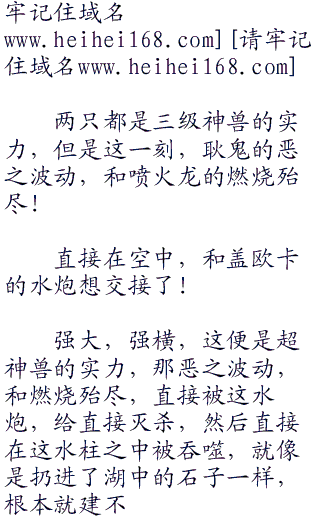 牢记住域名
www.heihei168.com][请牢记
住域名www.heihei168.com]
两只都是三级神兽的实
力，但是这一刻，耿鬼的恶
之波动，和喷火龙的燃烧殆
尽！
直接在空中，和盖欧卡
的水炮想交接了！
强大，强横，这便是超
神兽的实力，那恶之波动，
和燃烧殆尽，直接被这水
炮，给直接灭杀，然后直接
在这水柱之中被吞噬，就像
是扔进了湖中的石子一样，
根本就建不